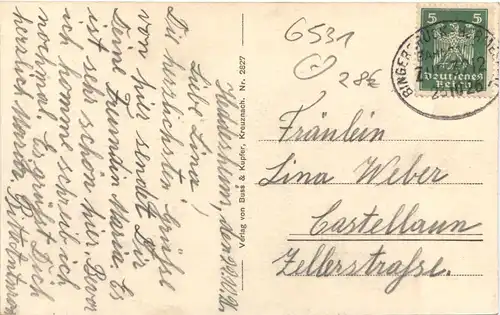 Liebe Lina!
Die herzlichsten Grüße
von hier sendet Dir
Deine Freundin Maria. Es
ist sehr schön hier. Bevor
ich komme schreibe ich
nochmal. Es grüßt Dich
herzlichst Maria. Bitte
Verlag von Buss & Kupfer, Kreuznach. Nr. 2827
6531
28€
5 5
Deutsches
Reich
BINGERBRÜCK
Fräulein
Lina Weber
Castellaun
Zellerstraße.